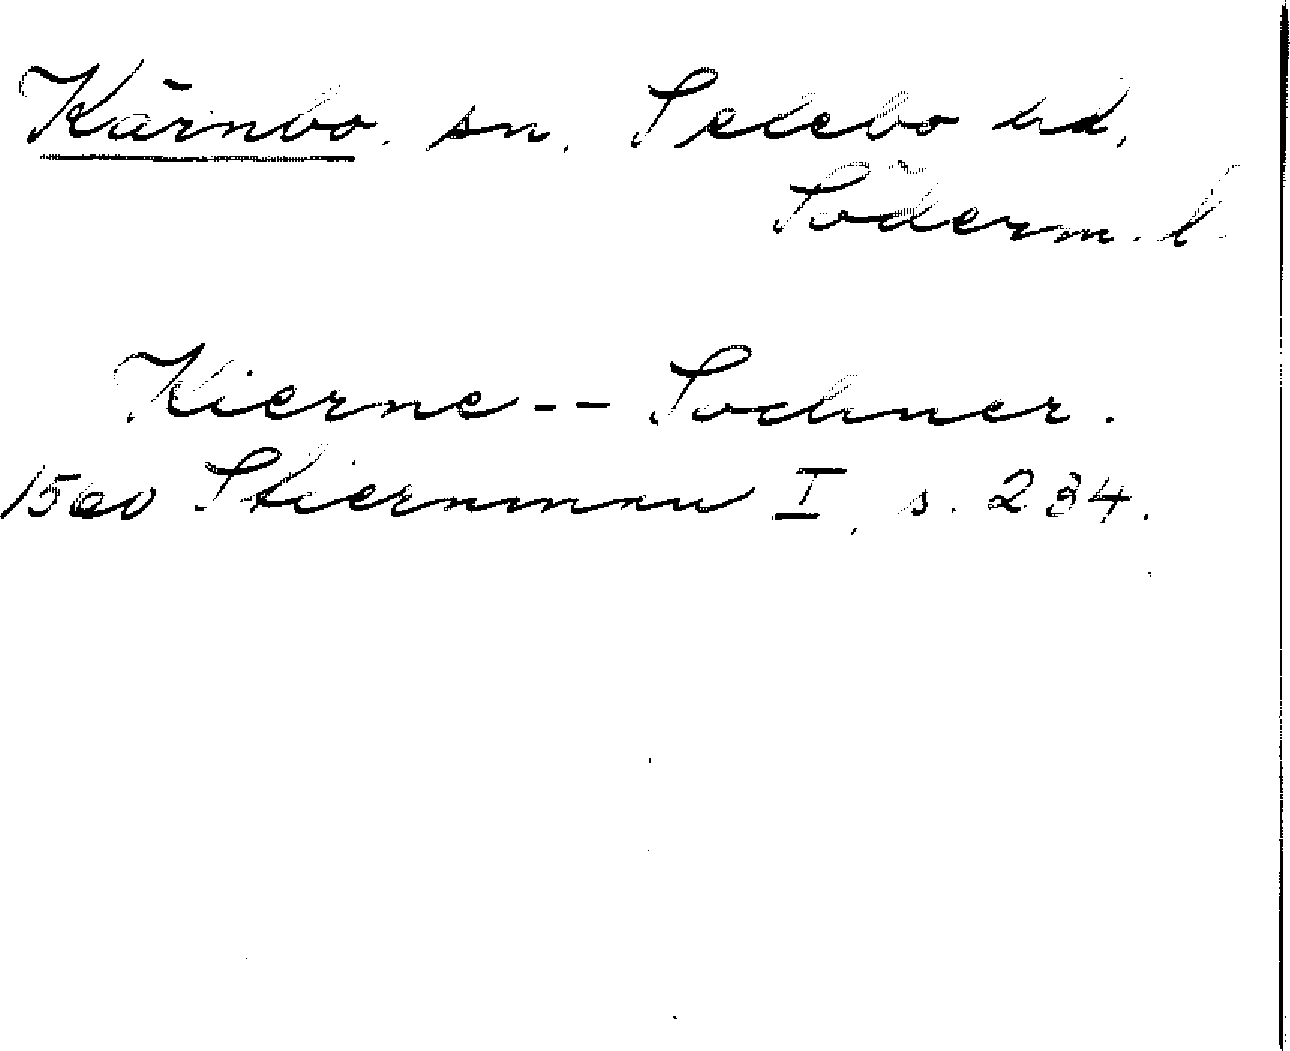 Kärnbo. sn. Selebo hd,
Söderm. l.
Kierne -- Sochner.
1560 Stiernman I, s. 234.